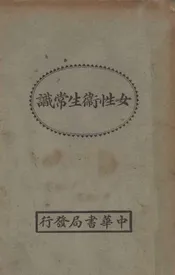 女性衛生常識
中華書局發行